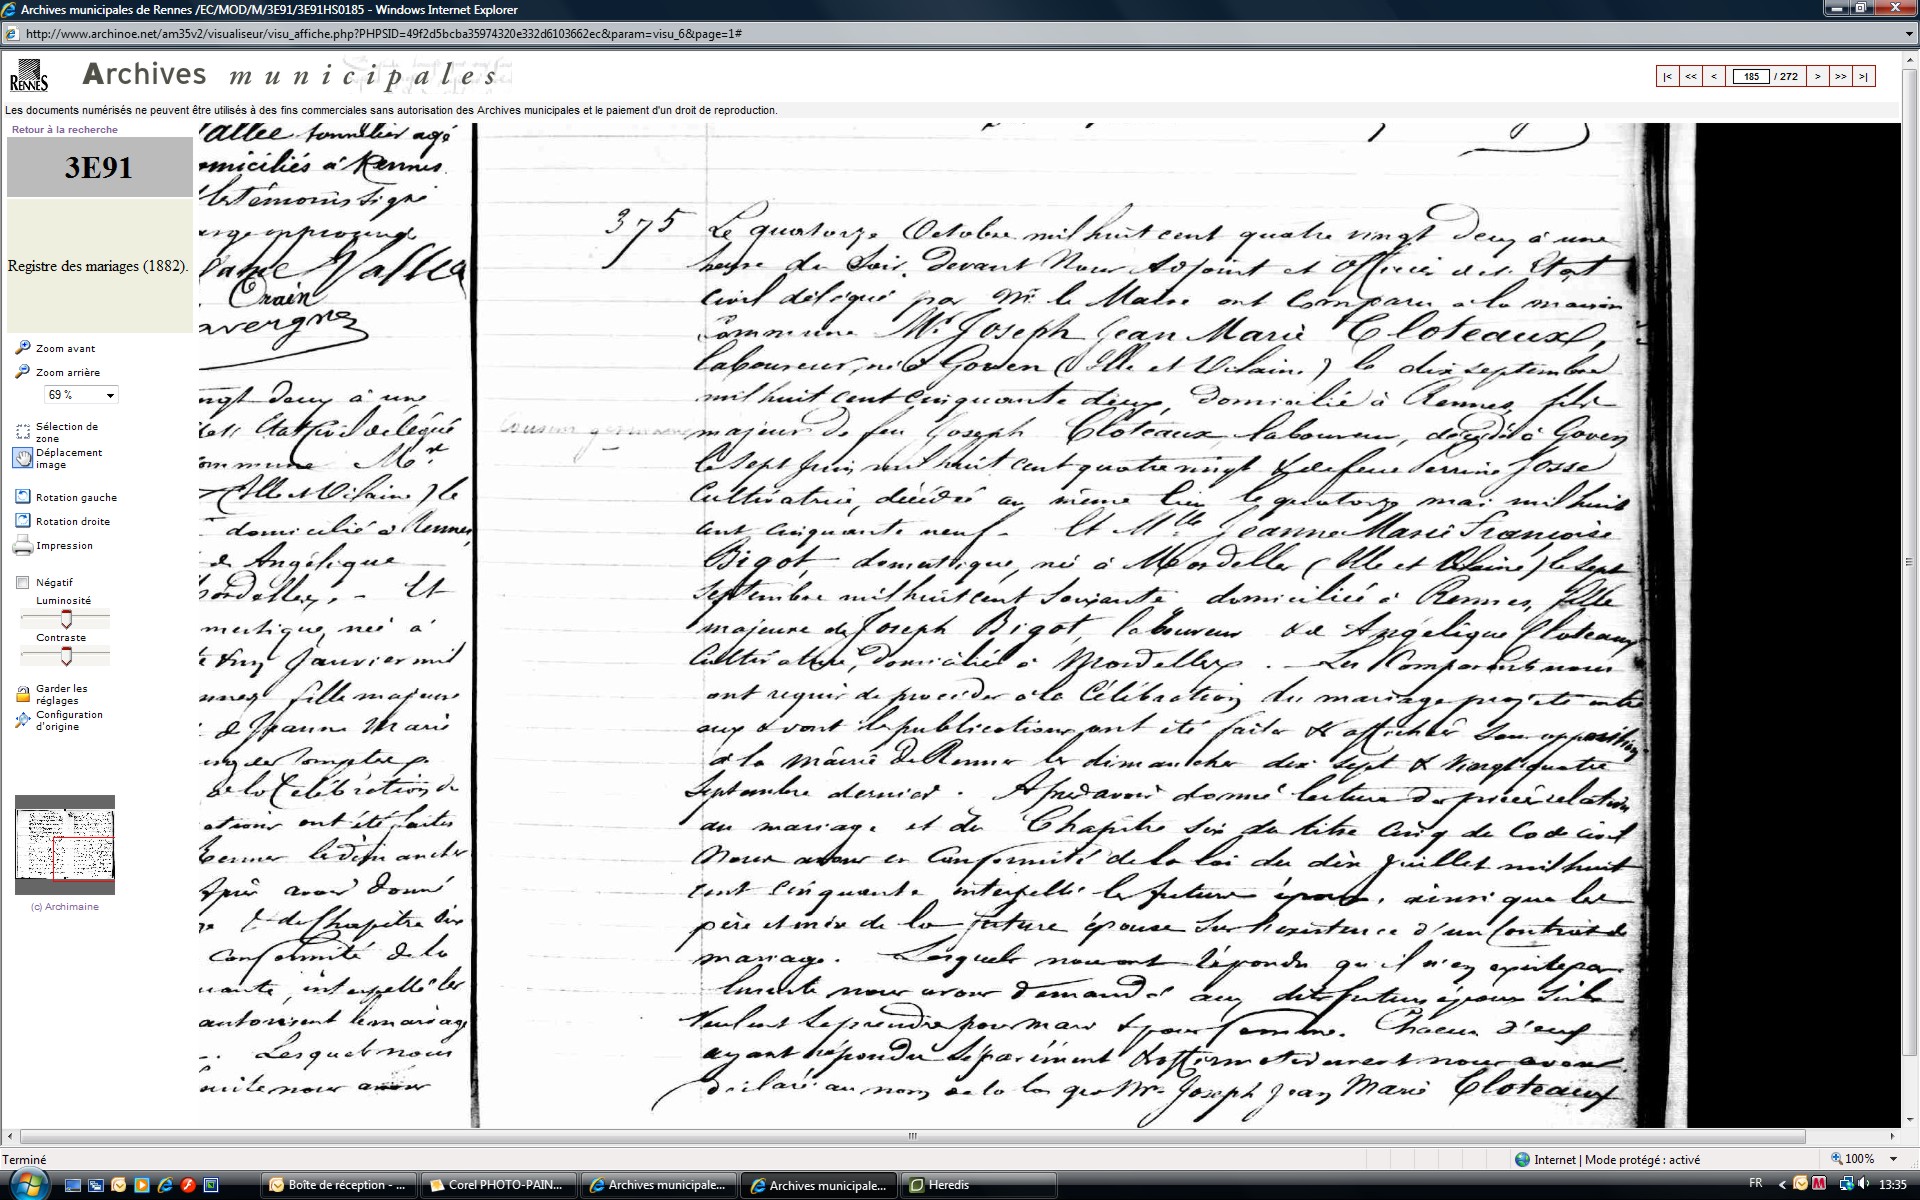 Archives municipales de Rennes /EC/MOD/M/3E91/3E91HS0185 - Windows Internet Explorer
http://www.archinoe.net/am35v2/visualiseur/visu_affiche.php?PHPSID=49f2d5bcba35974320e332d6103662ec&param=visu_6&page=1#
RENNES
Archives municipales
|< << < 185 / 272 > >> >|
Les documents numérisés ne peuvent être utilisés à des fins commerciales sans autorisation des Archives municipales et le paiement d'un droit de reproduction.
Retour à la recherche
3E91
Registre des mariages (1882).
Zoom avant
Zoom arrière
69 %
Sélection de
zone
Déplacement
image
Rotation gauche
Rotation droite
Impression
Négatif
Luminosité
Contraste
Garder les
réglages
Configuration
d'origine
(c) Archimaine
allee tonnelier agé
omiciliés à Rennes.
les témoins signé
Vallée
Orain
avergne
ingt deux à une
Etat Civil délégué
ommune Mr
(Ille et Vilaine) le
domicilié à Rennes,
de Angélique
Mordelles. - Et
mestique, née à
Janvier mil
fille majeure
de Jeanne Marie
de la Célébration du
ations ont été faites
Rennes le dimanches
Après avoir donné
du Chapitre Six
conformité de la
uante, interpellé les
autorisent le mariage
Lesquels nous
suite nous avons
375
Le quatorze Octobre mil huit cent quatre vingt deux à une
heure du Soir, Devant Nous Adjoint et Officier de l'Etat
civil délégué par Mr le Maire ont Comparu à la maison
Commune Mr Joseph Jean Marie Cloteaux,
laboureur, né à Goven (Ille et Vilaine) le dix septembre
mil huit cent cinquante deux, domicilié à Rennes, fils
Cousin germaine
majeur de feu Joseph Cloteaux laboureur, décédé à Goven
le sept Juin mil huit cent quatre vingt & de feue Perrine Josse
Cultivatrice, décédée au même lieu le quatorze mai mil huit
cent cinquante neuf. Et Mlle Jeanne Marie Françoise
Bigot domestique, née à Mordelles (Ille et Vilaine) le sept
Septembre mil huit cent soixante, domiciliée à Rennes, fille
majeure de Joseph Bigot, laboureur & de Angélique Cloteaux
Cultivatrice, domiciliés à Mordelles. - Les Comparants nous
ont requis de procéder à la Célébration du mariage projeté entre
eux & dont les publications ont été faites & affichées sans opposition
à la mairie de Rennes les dimanches dix sept & vingt quatre
Septembre dernier. Après avoir donné lecture des pièces relatives
au mariage et du Chapitre six du titre Cinq du Code civil
Nous avons en Conformité de la loi du dix Juillet mil huit
cent cinquante interpellé les futurs époux, ainsi que les
père et mère de la future épouse sur l'existence d'un Contrat de
mariage. Lesquels nous ont répondu qu'il n'en existe pas
Ensuite nous avons demandé aux dits futurs époux s'ils
veulent se prendre pour mari & pour femme. Chacun d'eux
ayant répondu séparément & affirmativement nous avons
déclaré au nom de la loi que Mr Joseph Jean Marie Cloteaux
Terminé
Internet | Mode protégé : activé
100%
Boîte de réception - ...
Corel PHOTO-PAIN...
Archives municipale...
Archives municipale...
Heredis
FR
13:35